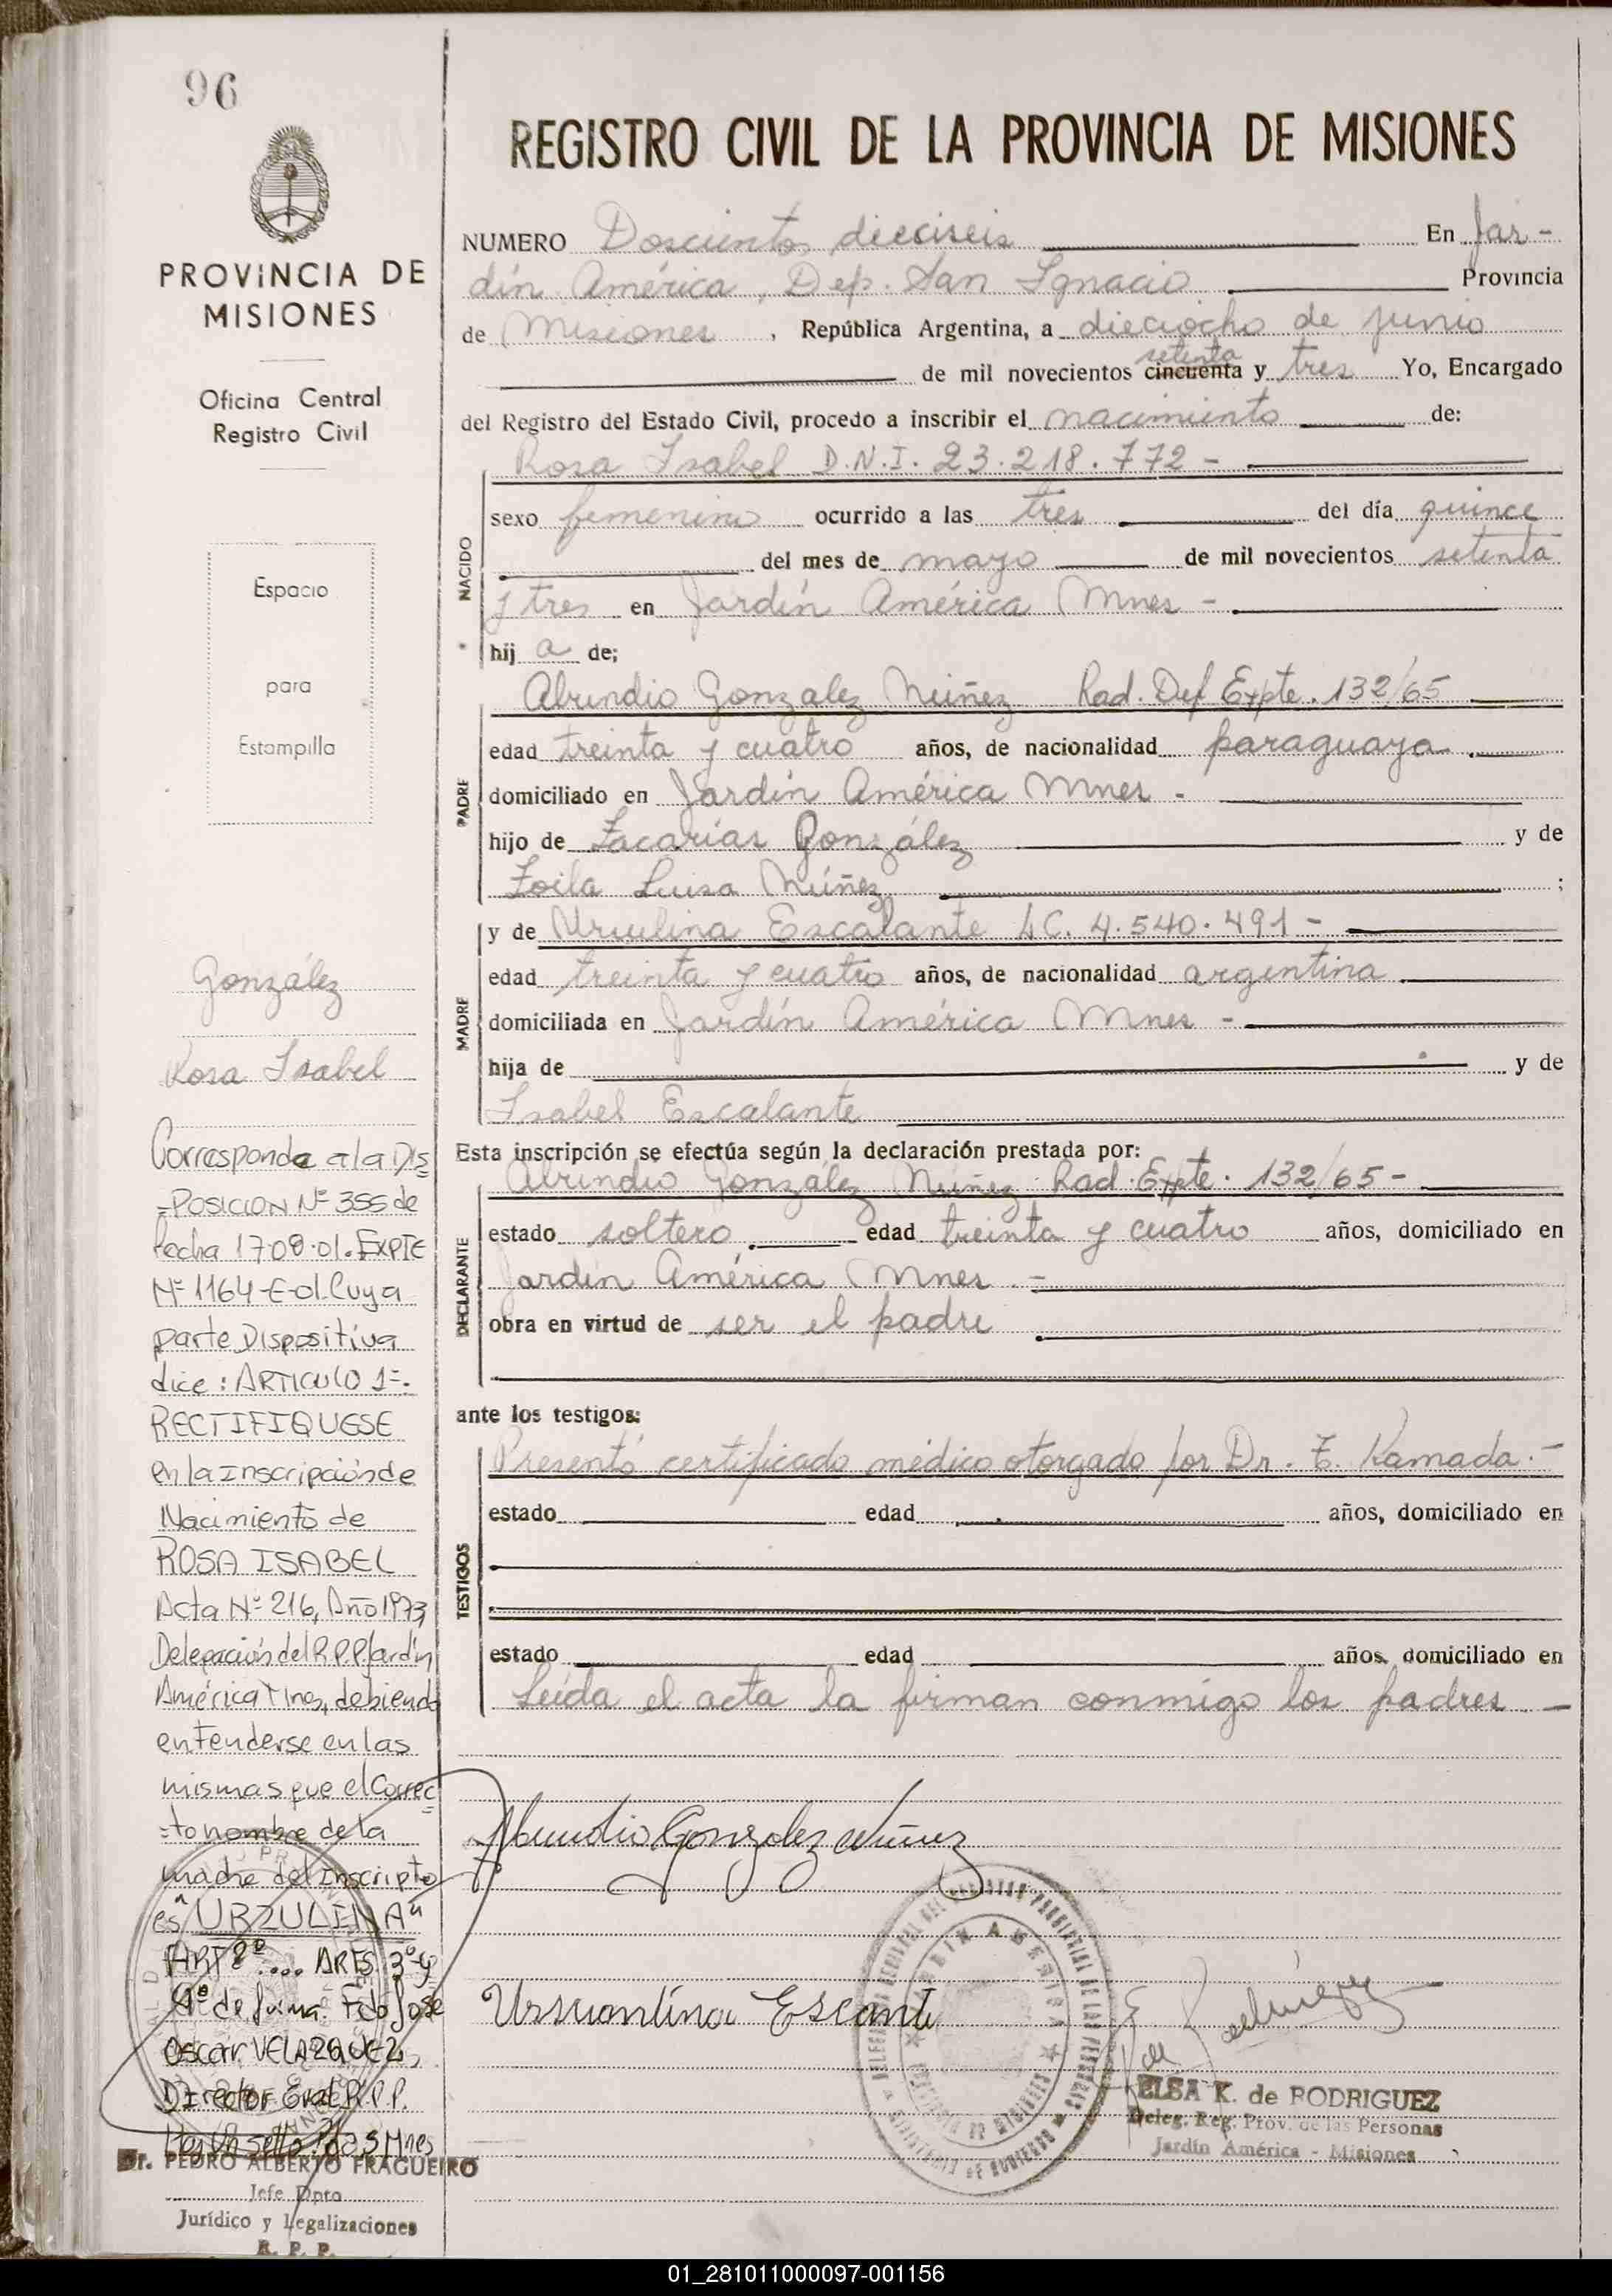 96
PROVINCIA DE
MISIONES
Oficina Central
Registro Civil
Espacio
para
Estampilla
González
Rosa Isabel
Corresponde a la Dis
=POSICION Nº 355 de
fecha 17.08.01. EXPTE
Nº 1164-E-01. Cuya
parte Dispositiva
dice: ARTICULO 1º.
RECTIFIQUESE
en la Inscripción de
Nacimiento de
ROSA ISABEL
Acta Nº 216, Año 1973,
Delegación del R.P.P. Jardín
América Mnes, debiendo
entenderse en las
mismas que el Correc
=to nombre de la
madre del Inscripto
es "URZULINA"
ART 2º .... ARTS 3º y
4º de forma. Fdo José
Oscar VELAZQUEZ,
Director Gral R.P.P.
Mnes
Dr. PEDRO ALBERTO FRAGUEIRO
Jefe Dpto
Jurídico y Legalizaciones
R. P. P.
REGISTRO CIVIL DE LA PROVINCIA DE MISIONES
NUMERO Doscientos dieciseis En Jar-
dín América, Dep. San Ignacio Provincia
de Misiones, República Argentina, a dieciocho de junio
setenta
de mil novecientos cincuenta y tres Yo, Encargado
del Registro del Estado Civil, procedo a inscribir el nacimiento de:
Rosa Isabel D.N.I. 23.218.772 -
NACIDO
sexo femenino ocurrido a las tres del día quince
del mes de mayo de mil novecientos setenta
y tres en Jardín América Mnes -
hij a de;
PADRE
Abundio Gonzalez Núñez Rad. Def Expte. 132/65
edad treinta y cuatro años, de nacionalidad paraguaya.
domiciliado en Jardín América Mnes -
hijo de Zacarías González y de
Zoila Luisa Núñez ;
MADRE
y de Ursulina Escalante LC. 4.540.491 -
edad treinta y cuatro años, de nacionalidad argentina
domiciliada en Jardín América Mnes -
hija de y de
Isabel Escalante
Esta inscripción se efectúa según la declaración prestada por:
DECLARANTE
Abundio González Núñez Rad. Expte. 132/65 -
estado soltero edad treinta y cuatro años, domiciliado en
Jardín América Mnes. -
obra en virtud de ser el padre
ante los testigos:
TESTIGOS
Presentó certificado médico otorgado por Dr. E. Kamada. -
estado edad años, domiciliado en
estado edad años, domiciliado en
Leída el acta la firman conmigo los padres -
Abundio Gonzalez Nuñez
Ursuantina Escante
JARDIN AMERICA
ELSA K. de RODRIGUEZ
Deleg. Reg. Prov. de las Personas
Jardín América - Misiones
01_281011000097-001156